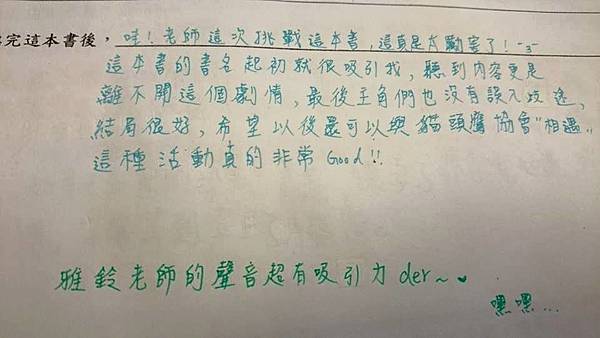 完這本書後，哇！老師這次挑戰這本書，這真是太厲害了！ˉ3ˉ
這本書的書名起初就很吸引我，聽到內容更是
離不開這個劇情，最後主角們也沒有誤入歧途，
結局很好，希望以後還可以與貓頭鷹協會"相遇"
這種活動真的非常Good!!
雅鈴老師的聲音超有吸引力der~♥
嘿嘿...